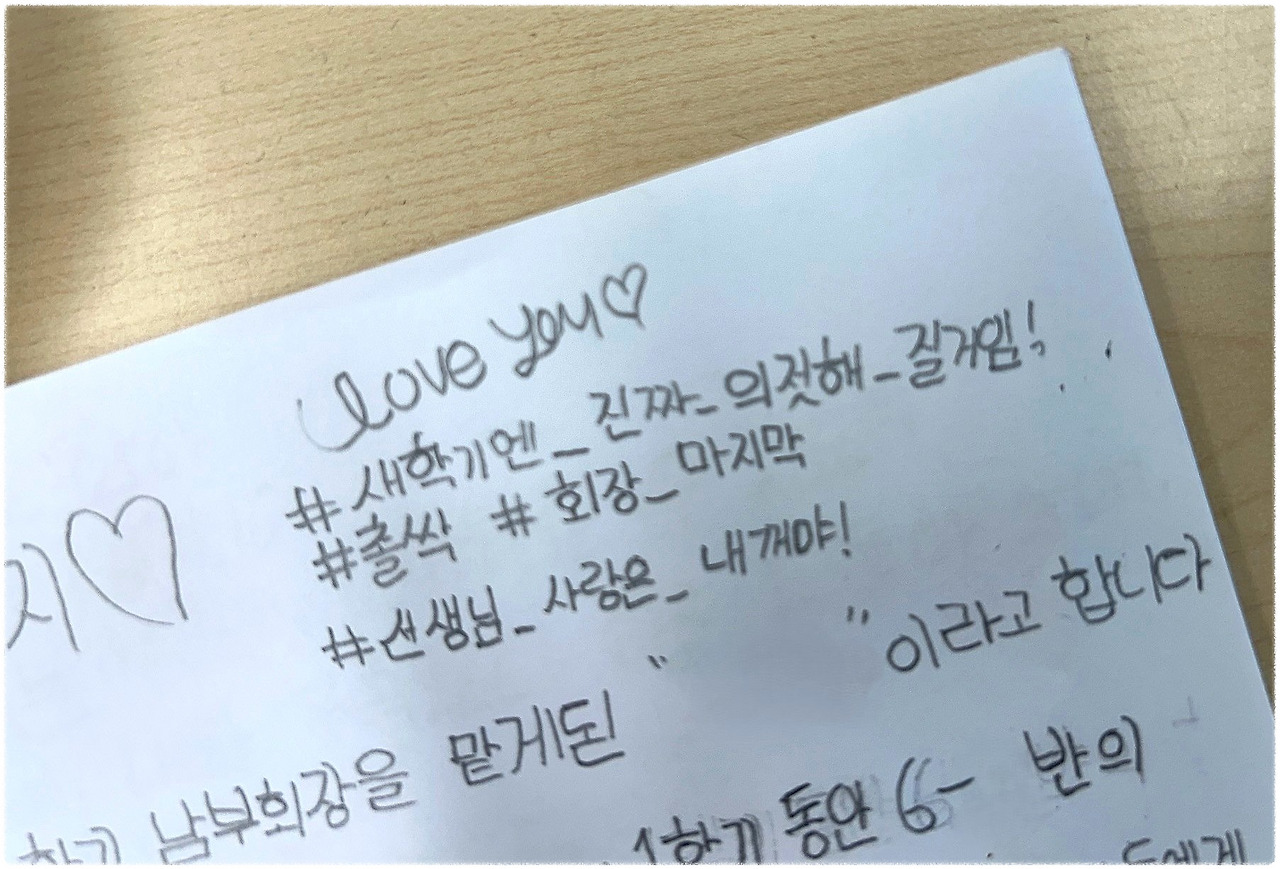 love you♡
#새학기엔_진짜_의젓해_질거임!
#촐싹 #회장_마지막
#선생님_사랑은_내꺼야!
지♡
" " 이라고 합니다
학기 남부회장을 맡게된
1학기 동안 6- 반의
에게